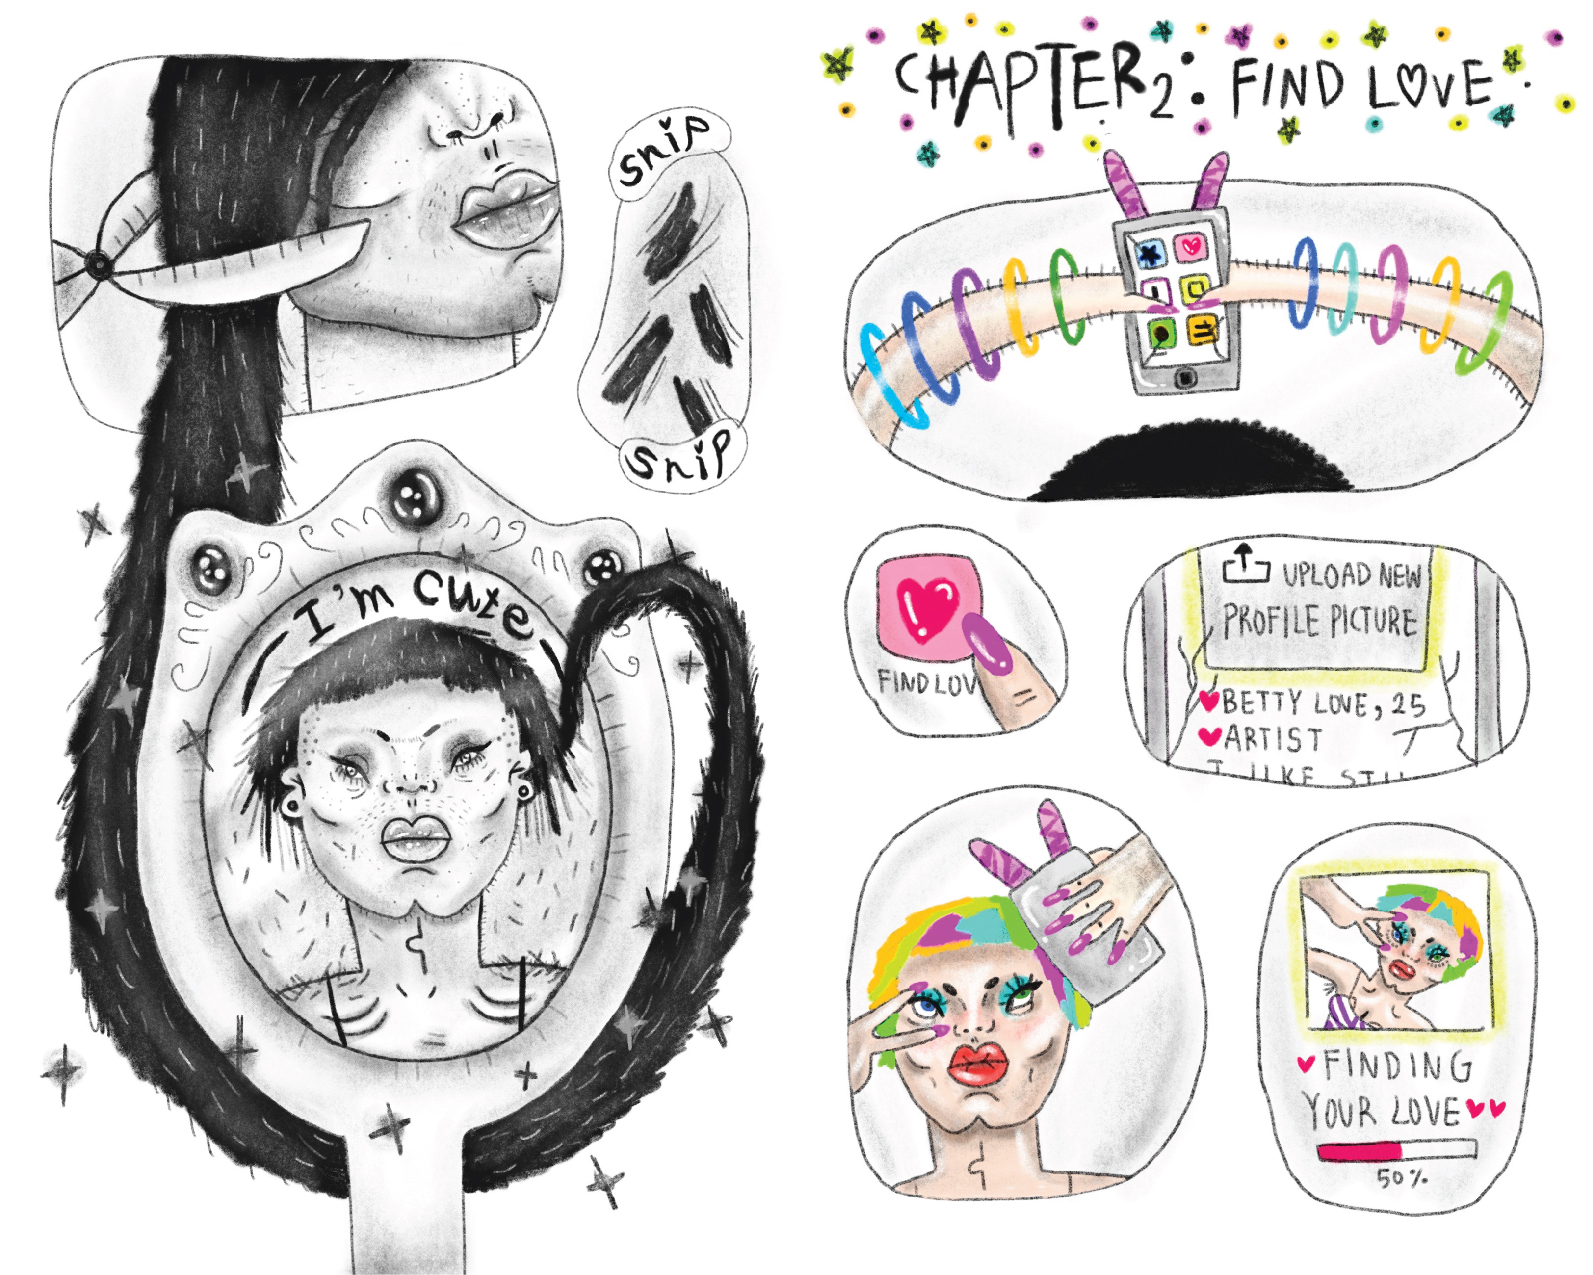 snip
snip
I'm cute
CHAPTER 2: FIND LOVE
FIND LOV
UPLOAD NEW
PROFILE PICTURE
BETTY LOVE, 25
ARTIST
I LIKE
FINDING
YOUR LOVE
50%